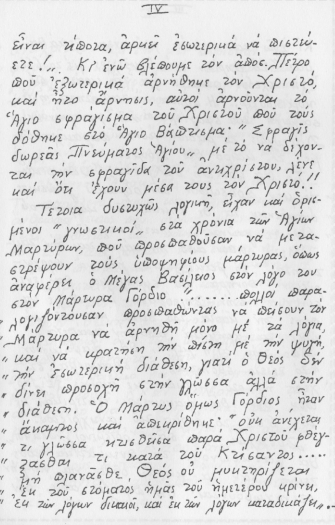 IV
εἶναι τίποτα, ἀρκεῖ ἐσωτερικά νά πιστεύ-
ετε!" Κι' ἐνῶ βλέπουμε τόν ἀπόσ. Πέτρο
πού ἐξωτερικά ἀρνήθηκε τόν Χριστό,
καί ἦτο ἄρνησις, αὐτοί ἀρνοῦνται τό
Ἅγιο σφράγισμα τοῦ Χριστοῦ πού τούς
δόθηκε στό Ἅγιο Βάπτισμα· "Σφραγίς
δωρεᾶς Πνεύματος Ἁγίου" μέ τό νά δέχον-
ται τήν σφραγίδα τοῦ ἀντιχρίστου, λένε
καί ὅτι ἔχουν μέσα τους τόν Χριστό.!!
Τέτοια δυστυχῶς λογική, εἶχαν καί ὁρισ-
μένοι "γνωστικοί" στά χρόνια τῶν Ἁγίων
Μαρτύρων, πού προσπαθοῦσαν νά μετα-
στρέψουν τούς ὑποψηφίους μάρτυρας, ὅπως
ἀναφέρει ὁ Μέγας Βασίλειος στόν λόγο του
στόν Μάρτυρα Γόρδιο "...... πολλοί παρα-
λογιζοντοῦσαν προσπαθώντας νά πείσουν τόν
" Μάρτυρα νά ἀρνηθῆ μόνο μέ τά λόγια,
" καί νά κρατήση τήν πίστη μέ τήν ψυχή,
" τήν ἐσωτερική διάθεση, γιατί ὁ Θεός δέν
" δίνει προσοχή στήν γλῶσσα ἀλλά στήν
" διάθεση. Ὁ Μάρτυς ὅμως Γόρδιος ἦταν
" ἄκαμπτος καί ἀπεκρίθηκε· οὐκ ἀνέχεται
" τι γλῶσσα κτισθεῖσα παρά Χριστοῦ φθέγ-
" ξασθαι τι κατά τοῦ Κτίσαντος.....
" μή πλανᾶσθε, Θεός οὐ μυκτηρίζεται
" ἐκ τοῦ στόματος ἡμᾶς τοῦ ἡμετέρου κρίνει,
" ἐκ τῶν λόγων δικαιοῖ, καί ἐκ τῶν λόγων καταδικάζει".